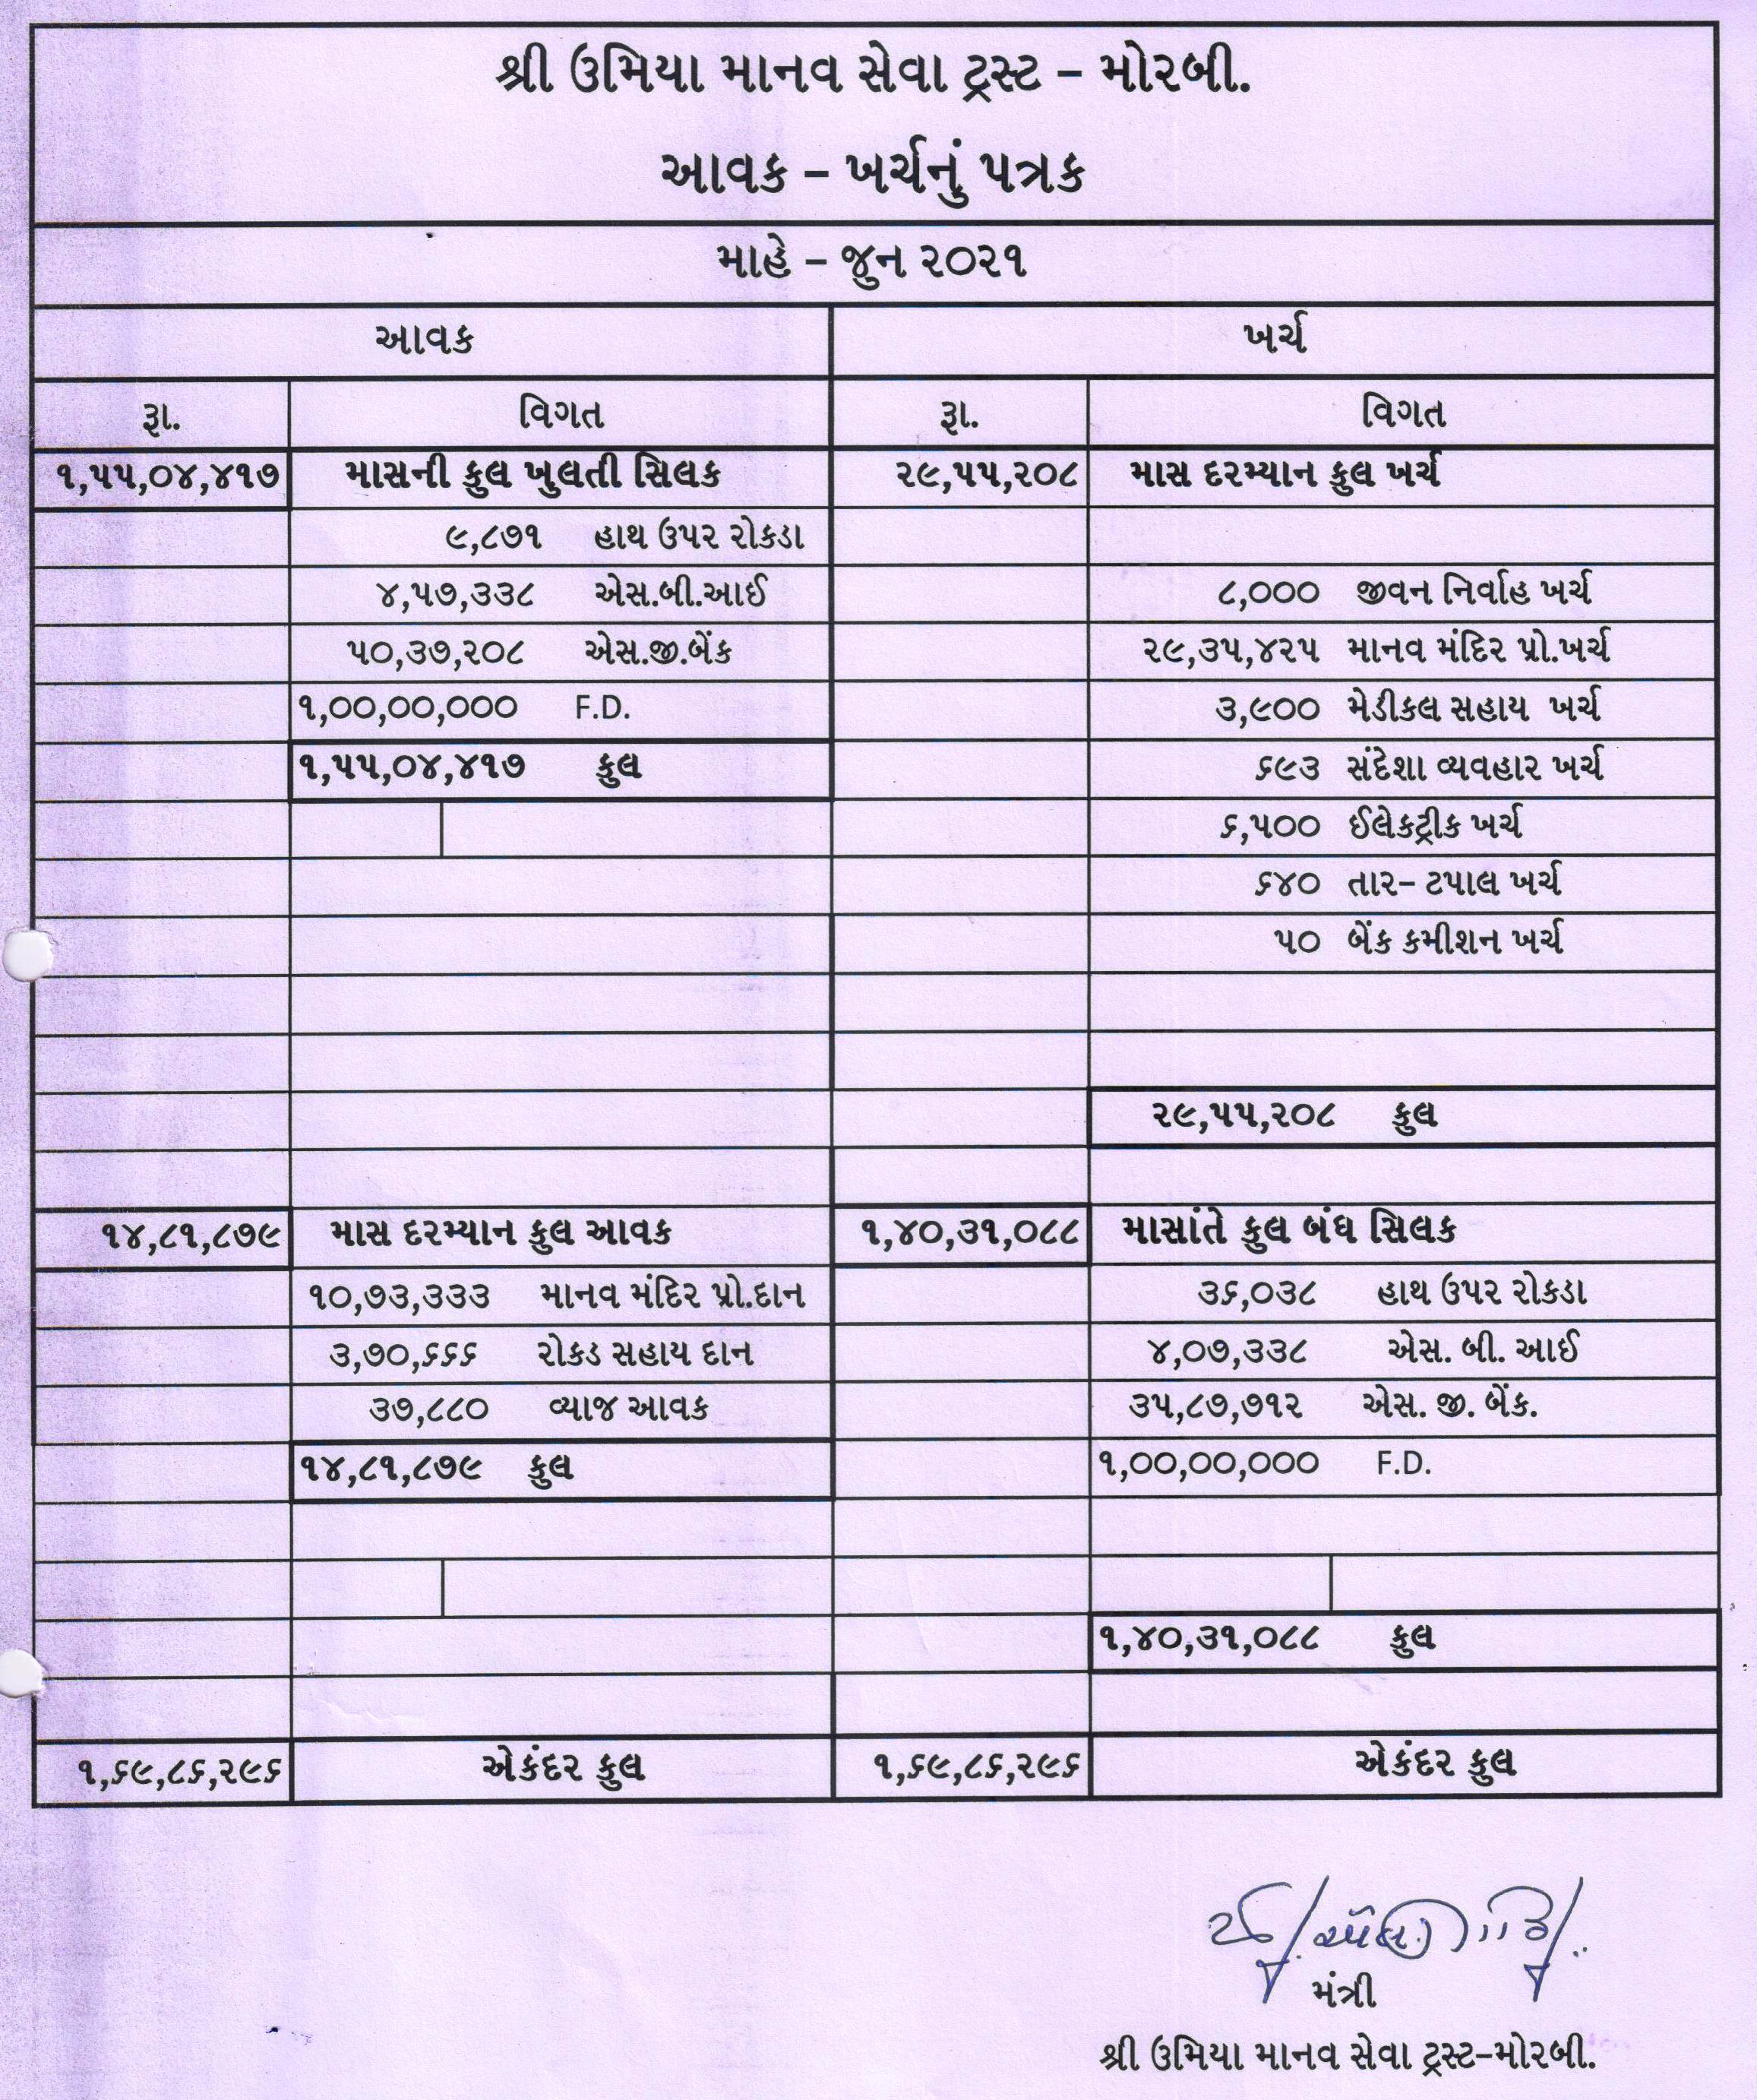 શ્રી ઉમિયા માનવ સેવા ટ્રસ્ટ – મોરબી.
આવક – ખર્ચનું પત્રક
માહે – જુન ૨૦૨૧
આવક ખર્ચ
રૂા. વિગત રૂા. વિગત
૧,૫૫,૦૪,૪૧૭ માસની કુલ ખુલતી સિલક ૨૯,૫૫,૨૦૮ માસ દરમ્યાન કુલ ખર્ચ
૯,૮૭૧ હાથ ઉપર રોકડા
૪,૫૭,૩૩૮ એસ.બી.આઈ ૮,૦૦૦ જીવન નિર્વાહ ખર્ચ
૫૦,૩૭,૨૦૮ એસ.જી.બેંક ૨૯,૩૫,૪૨૫ માનવ મંદિર પ્રો.ખર્ચ
૧,૦૦,૦૦,૦૦૦ F.D. ૩,૯૦૦ મેડીકલ સહાય ખર્ચ
૧,૫૫,૦૪,૪૧૭ કુલ ૬૯૩ સંદેશા વ્યવહાર ખર્ચ
૬,૫૦૦ ઈલેકટ્રીક ખર્ચ
૬૪૦ તાર– ટપાલ ખર્ચ
૫૦ બેંક કમીશન ખર્ચ
૨૯,૫૫,૨૦૮ કુલ
૧૪,૮૧,૮૭૯ માસ દરમ્યાન કુલ આવક ૧,૪૦,૩૧,૦૮૮ માસાંતે કુલ બંધ સિલક
૧૦,૭૩,૩૩૩ માનવ મંદિર પ્રો.દાન ૩૬,૦૩૮ હાથ ઉપર રોકડા
૩,૭૦,૬૬૬ રોકડ સહાય દાન ૪,૦૭,૩૩૮ એસ. બી. આઈ
૩૭,૮૮૦ વ્યાજ આવક ૩૫,૮૭,૭૧૨ એસ. જી. બેંક.
૧૪,૮૧,૮૭૯ કુલ ૧,૦૦,૦૦,૦૦૦ F.D.
૧,૪૦,૩૧,૦૮૮ કુલ
૧,૬૯,૮૬,૨૯૬ એકંદર કુલ ૧,૬૯,૮૬,૨૯૬ એકંદર કુલ
મંત્રી
શ્રી ઉમિયા માનવ સેવા ટ્રસ્ટ–મોરબી.